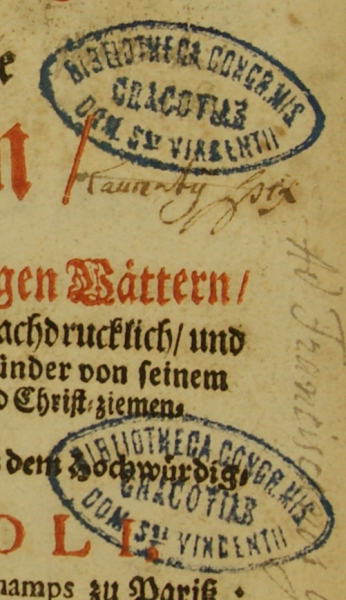 BIBLIOTHECA CONGR. MIS
CRACOVIAE
DOM. Sti VINCENTII
n /
gen Vättern/
achdrucklich/ und
ünder von seinem
d Christ-ziemen-
dem Hochwürdig-
BIBLIOTHECA CONGR. MIS
CRACOVIAE
DOM. Sti VINCENTII
OLI.
hamps zu Pariß